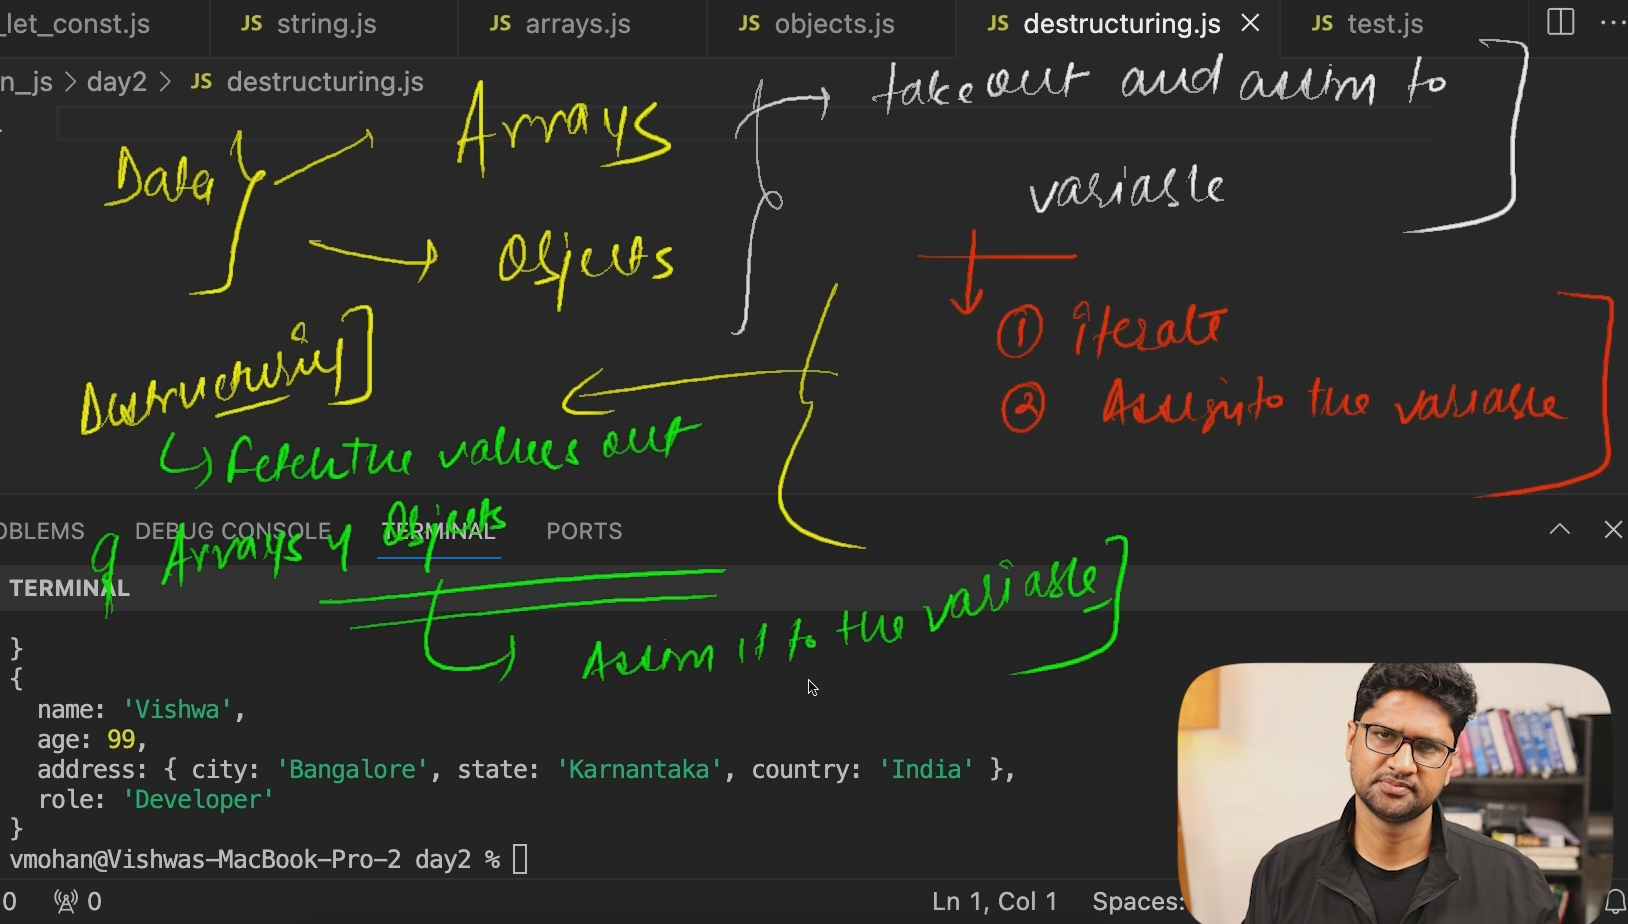 _let_const.js JS string.js JS arrays.js JS objects.js JS destructuring.js JS test.js
n_js > day2 > JS destructuring.js
take out and assign to
variable
Data
Arrays
Objects
① iterate
② Assign to the variable
Destructuring
Fetch the values out
of Arrays y Objects
Assign it to the variable
OBLEMS DEBUG CONSOLE TERMINAL PORTS
TERMINAL
}
{
name: 'Vishwa',
age: 99,
address: { city: 'Bangalore', state: 'Karnantaka', country: 'India' },
role: 'Developer'
}
vmohan@Vishwas-MacBook-Pro-2 day2 %
0 0 Ln 1, Col 1 Spaces: